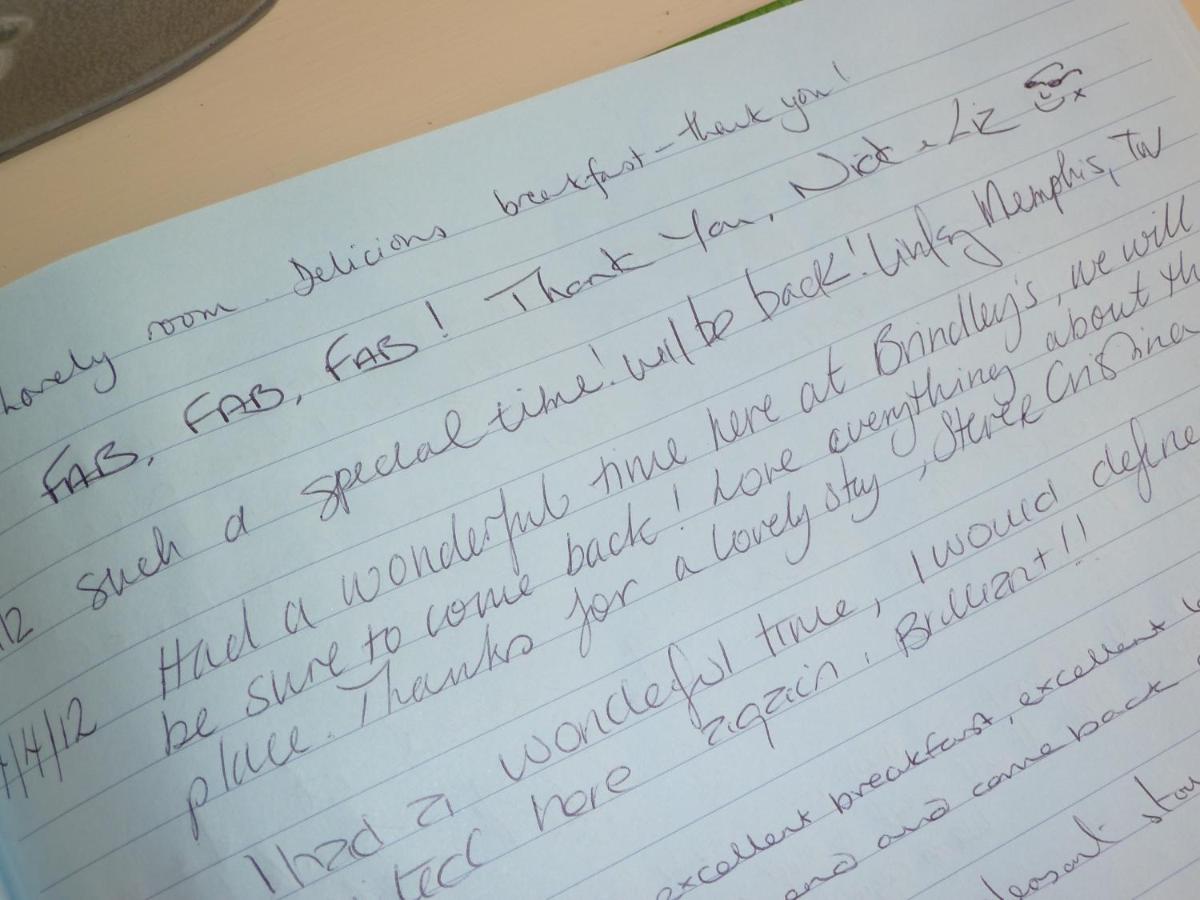 Lovely room. Delicious breakfast - thank you!
FAB, FAB, FAB! Thank You, Nick & Liz x
12 such a special time! will be back! Memphis, TN
4/12 Had a wonderful time here at Brindley's, we will
be sure to come back! Love everything about th
place. Thanks for a lovely stay, Steve & Cristina
I had a wondeful time, I would define
here again. Brilliant!!
excellent breakfast, excellent
and come back